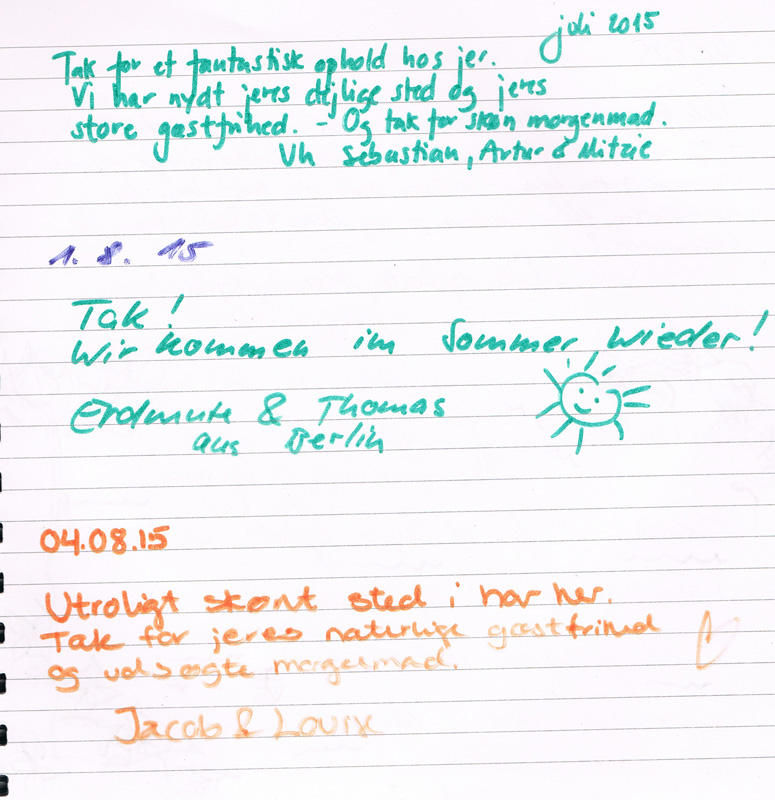 juli 2015
Tak for et fantastisk ophold hos jer.
Vi har nydt jeres dejlige sted og jeres
store gæstfrihed. - Og tak for skøn morgenmad.
Vh Sebastian, Artur & Mitzie
1. 8. 15
Tak!
Wir kommen im Sommer wieder!
Erdmute & Thomas
aus Berlin
04.08.15
Utroligt skønt sted i har her.
Tak for jeres naturlige gæstfrihed
og udsøgte morgenmad.
Jacob & Louise